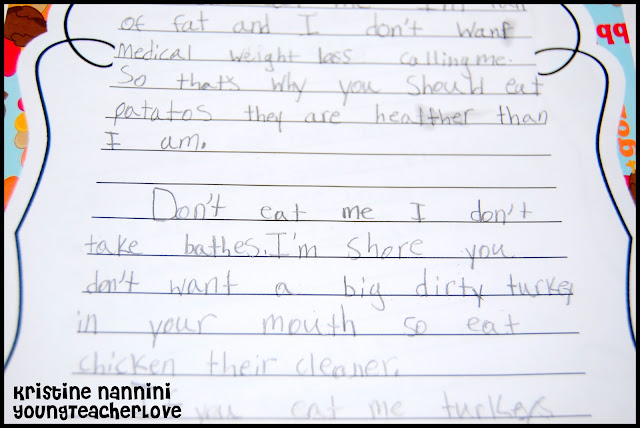 of fat and I don't want
Medical weight loss calling me.
So that's why you should eat
patatos they are healther than
I am.
Don't eat me I don't
take bathes. I'm shore you
don't want a big dirty turkey
in your mouth so eat
chicken their cleaner.
you eat me turkeys
Kristine Nannini
YoungTeacherLove